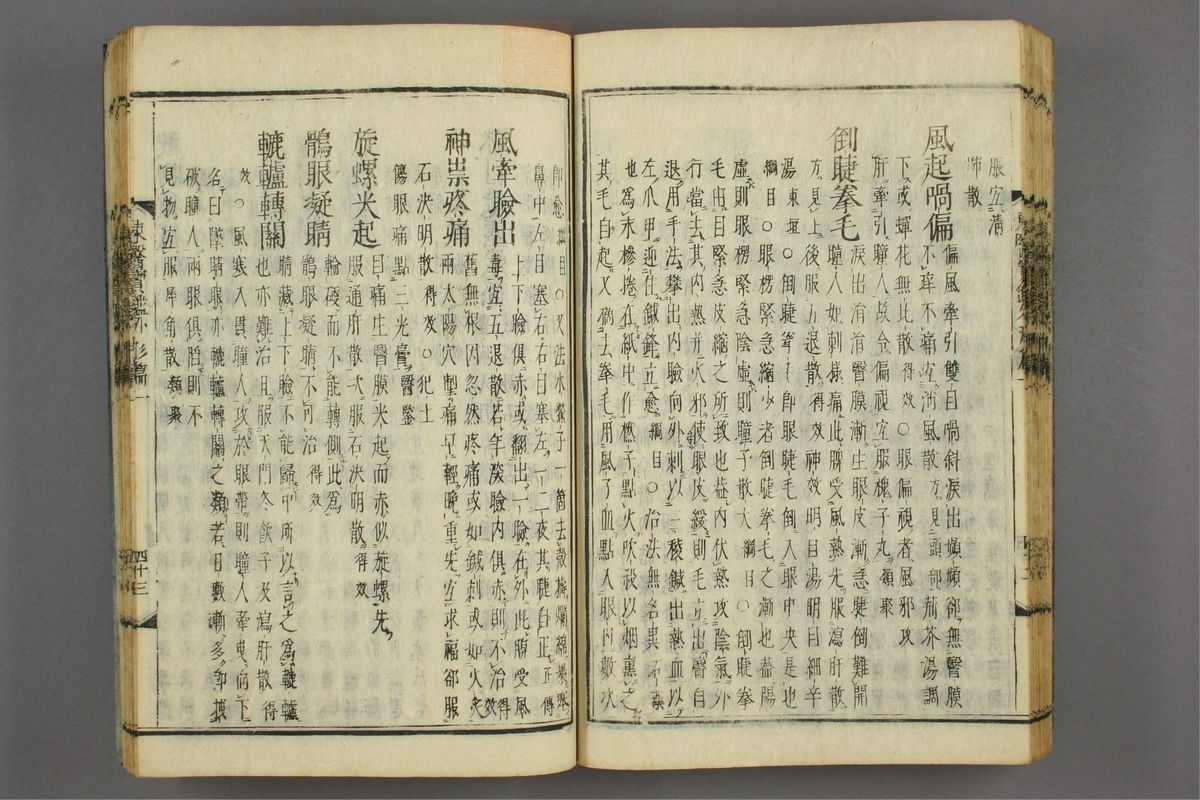 服宜清
肺散
風起喎偏 偏風牽引雙目喎斜淚出頻頻卻無瞖膜
不痒不痛宜消風散方見頭部荊芥湯調
下或蟬花無比散得效○眼偏視者風邪攻
肝牽引瞳人故令偏視宜服槐子丸類聚
倒睫拳毛 淚出涓涓瞖膜漸生眼皮漸急睫倒難開
瞳人如刺樣痛此脾受風熱先服瀉肝散
方見上後服五退散得效神效明目湯明目細辛
湯東垣○倒睫拳毛卽眼睫毛倒入眼中央是也
綱目○眼楞緊急縮少者倒睫拳毛之漸也盖陽
虛則眼楞緊急陰虛則瞳子散大綱目○倒睫拳
毛由目緊急皮縮之所致也盖內伏熱攻陰氣外
行當去其內熱并火邪使眼皮緩則毛立出瞖自
退用手法攀出內瞼向外刺以三稜鍼出熱血以
左爪甲迎住鍼鋒立愈綱目○治法無名異
也爲末糝捲在紙中作撚子點火吹殺以烟熏之
其毛自起又倒去拳毛用風子血點入眼內數次
卽愈綱目○又法木鱉子一箇去殼搥爛綿裹塞
鼻中左目塞右右目塞左一二夜其睫自正得
風牽瞼出 上下瞼俱赤或翻出一瞼在外此脾受風
毒宜五退散若年深瞼內俱赤則不治得效
神祟疼痛 舊無根因忽然疼痛或如鍼刺或如火灸
兩太陽穴掣痛早輕晩重先宜求福却服
石決明散得效○犯土
傷眼痛點三光膏醫鑒
旋螺尖起 目痛生瞖膜尖起而赤似旋螺先
服通肝散次服石決明散得效
鶻眼凝睛 輪硬而不能轉側此爲
鶻眼凝睛不可治得效
轆轤轉關 睛藏上下瞼不能歸中所以言之爲轆轤
也亦難治且服天門冬飮子及瀉肝散得
效○風寒入貫瞳人攻於眼帶則瞳人牽曳向下
名曰墜睛眼亦轆轤轉關之類若日數漸多卽拽
破瞳人兩眼俱陷則不
見物宜服犀角散類聚
東醫寶鑑外形篇一
四十三